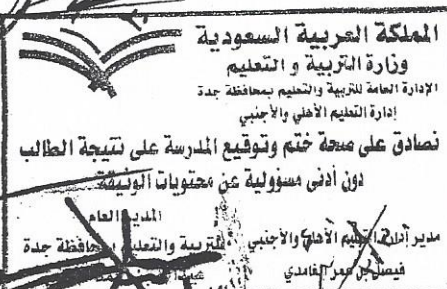 المملكة العربية السعودية
وزارة التربية و التعليم
الإدارة العامة للتربية والتعليم بمحافظة جدة
إدارة التعليم الأهلي والأجنبي
نصادق على صحة ختم وتوقيع المدرسة على نتيجة الطالب
دون أدنى مسؤولية عن محتويات الوثيقة
المدير العام
مدير إدارة التعليم الأهلي والأجنبي للتربية والتعليم بمحافظة جدة
فيصل بن معمر الغامدي